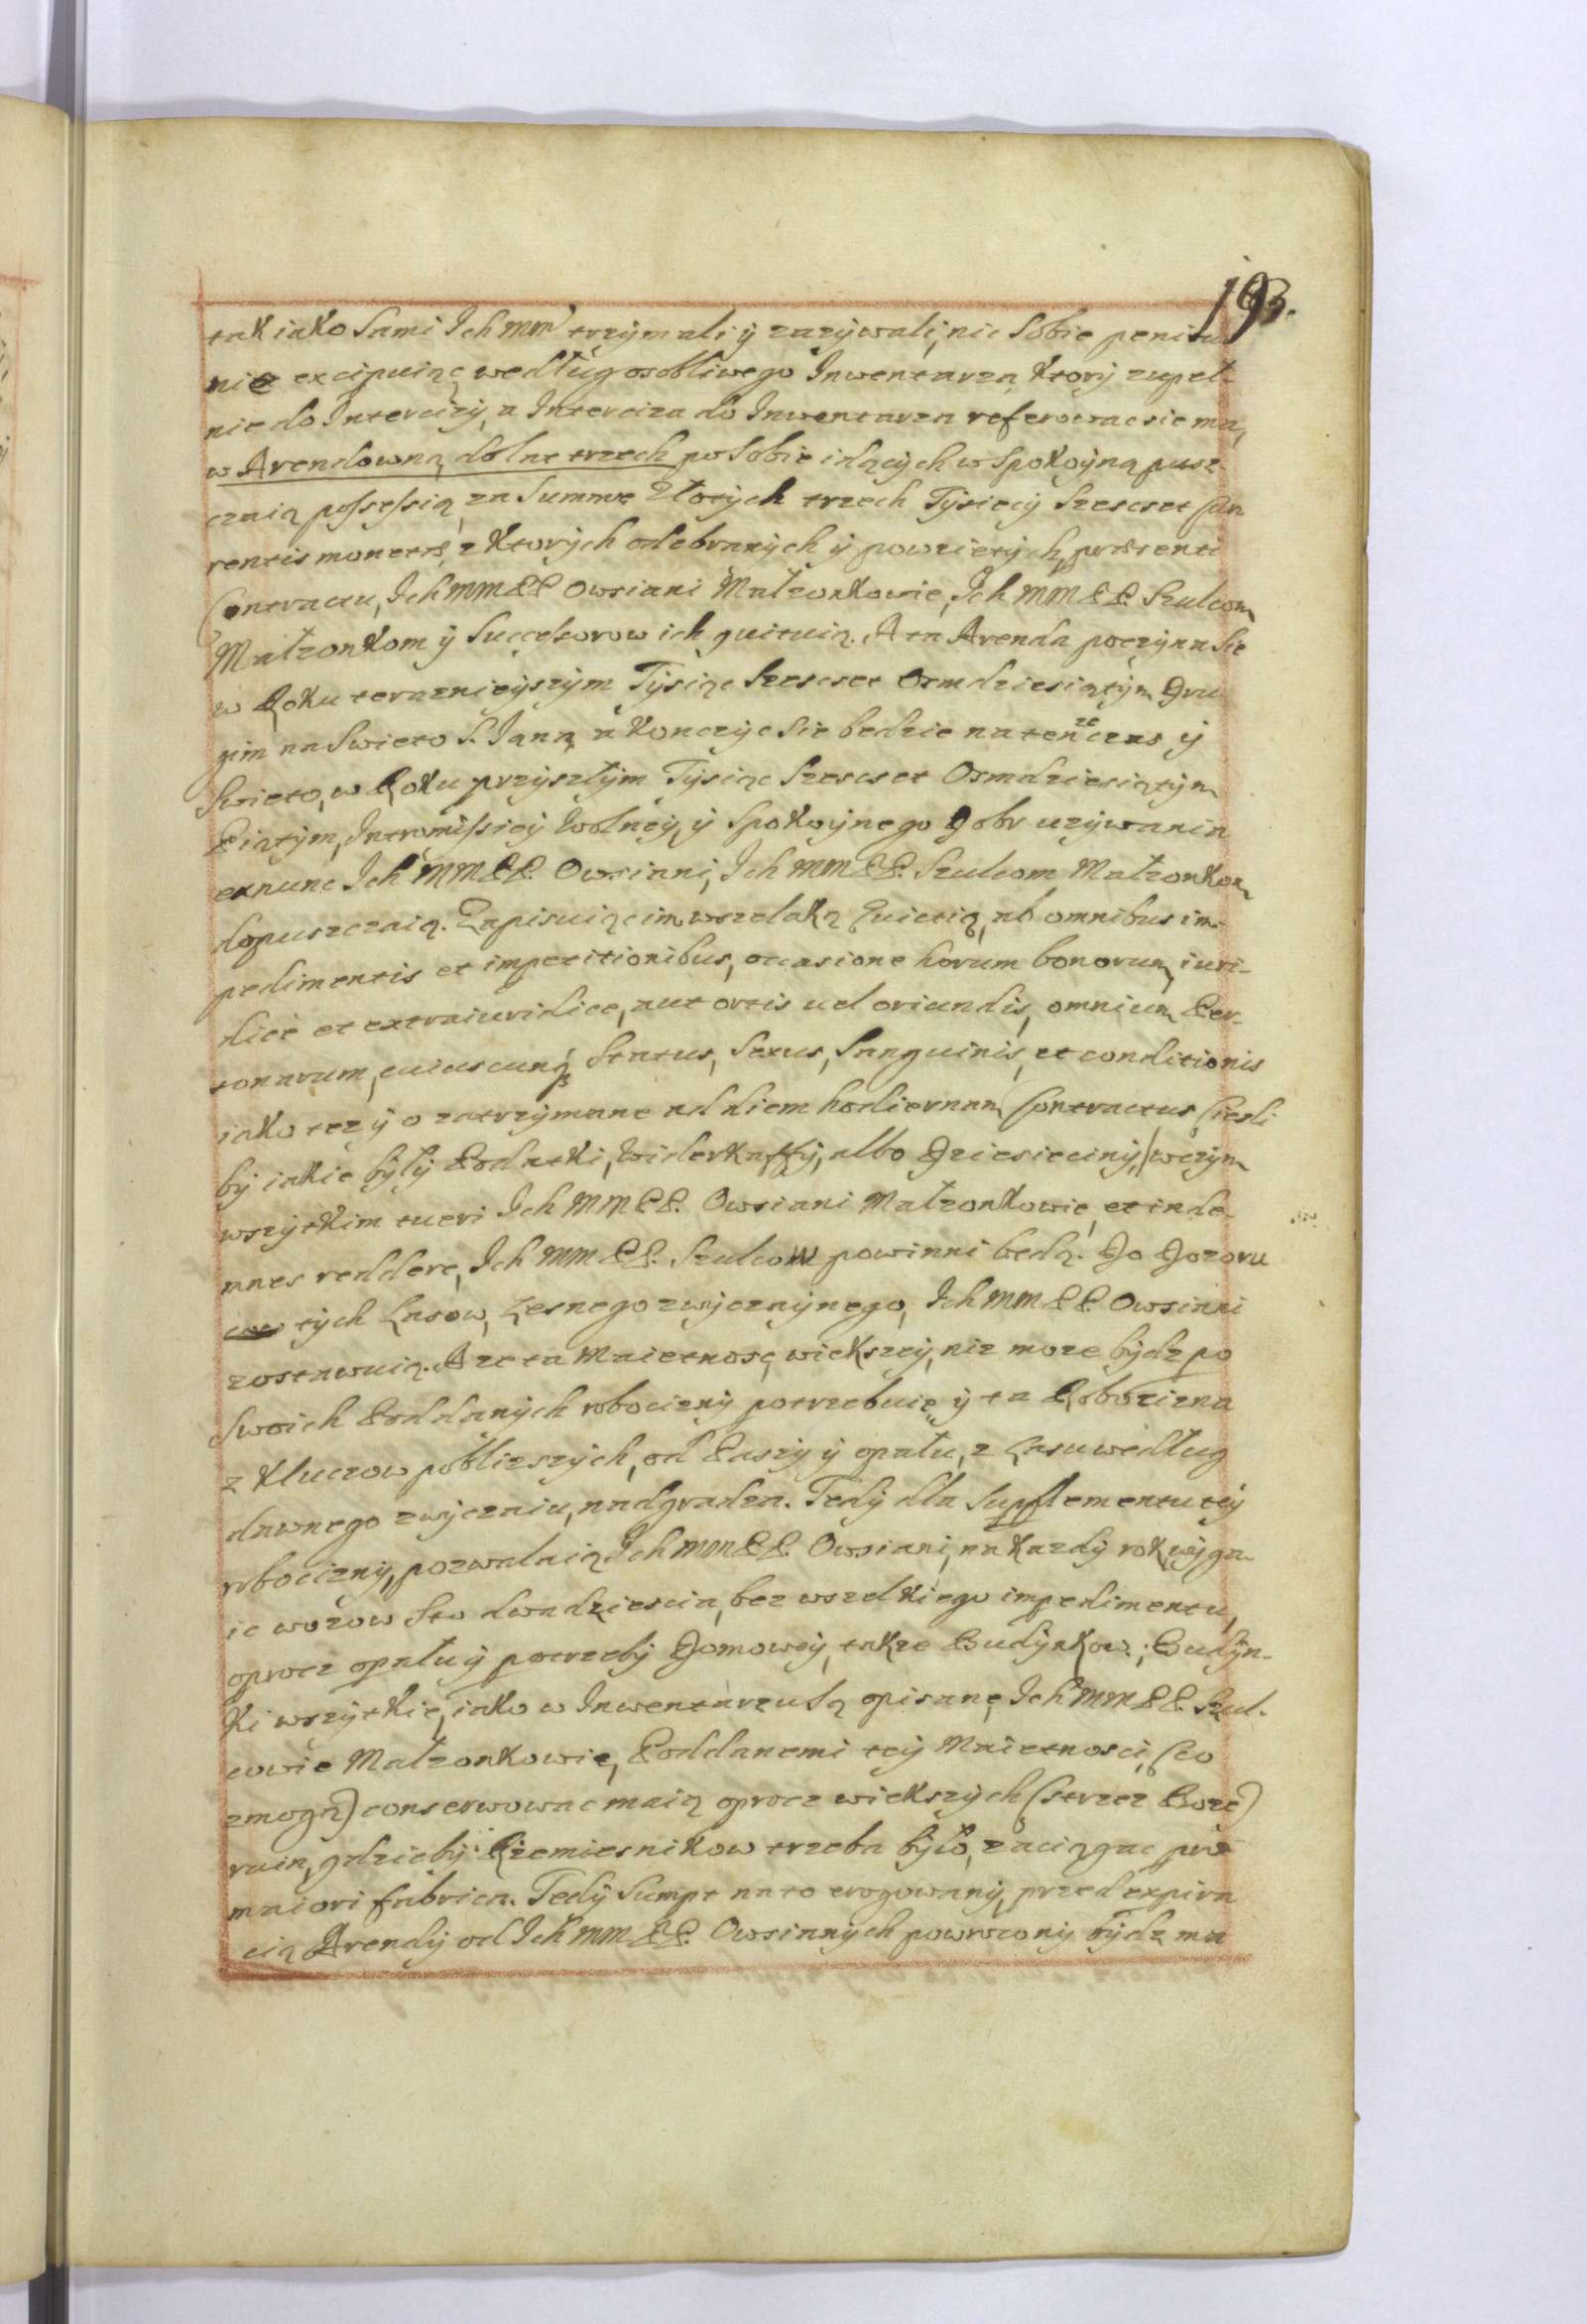 193.
tak iako sami Ich mm trzymali y zazywali, nic sobie penitu
nie excipuiąc według osobliwego Inwentarza, ktory zupeł-
nie do Intercizy, a Interciza do Inwentarza referowac sie ma,
w Arendowną dolne trzech po sobie idących w spokoyną pusz-
czaią possessią, za summe Złotych trzech Tysiecy Szescset Cur
rentis monetæ, z ktorych odebranych y powzietych, præsenti
Contractu, Ich MM PP Owsiani Małzonkowie, Ich MM PP. Szulcom
Małzonkom y Successorow ich quituią. A ta Arenda poczyna sie
w Roku teraznieyszym Tysiąc Szescset Osmdziesiątym Dru
gim na Swieto S. Jana, a konczyc sie bedzie na tenze czas y
Swieto, w Roku przyszłym Tysiąc Szescset Osmdziesiątym
Piątym, Intromissiey wolney, y spokoynego Dobr uzywania
exnunc Ich MM PP. Owsiani, Ich MM PP. Szulcom Małzonkom
dopuszczaią. Zapisuiąc im wszelaką Evictią, ab omnibus im-
pedimentis et impetitionibus, occasione horum bonorum, iuri-
dice et extraiuridice, aut ortis uel oriundis, omnium Per-
sonarum, cuiuscunq Status, Sexus, Sanguinis, et conditionis
iako tez y o zatrzymane ad diem hodiernam Contractus (iesli
by iakie były Podatki, Widerkaffy, albo Dziesieciny,) w czym
wszytkim tueri Ich MM PP. Owsiani Małzonkowie, et inde-
mnes reddere, Ich MM PP. Szulcow powinni będą. Do Dozoru
tych Lasow, Lesnego zwyczaynego, Ich MM PP. Owsiani
zostawuią. A ze ta Maietnosc, wiekszey, niz moze bydz po
swoich Poddanych robocizny potrzebuie, y ta Robocizna
z Kluczow poblizszych, od Paszy y opału, z Lasu według
dawnego zwyczaiu, nadgradza. Tedy dla Supplementu tey
robocizny, pozwalaią Ich MM PP. Owsiani, na kazdy rok wyga-
ic wozow sto dwadziescia, bez wszelkiego impedimentu,
oprocz opału y potrzeby Domowey, takze Budynkow.; Budyn-
ki wszytkie, iako w Inwentarzu są opisane, Ich MM PP. Szul-
cowie Małzonkowie, Poddanemi tey Maietnosci, (co
zmogą) conserwowac maią oprocz wiekszych (strzez Boze)
ruin, gdzieby Rzemiesnikow trzeba było, zaciągac pro
maiori fabrica. Tedy Sumpt na to erogowany, przed expira
cią Arendy od Ich MM PP. Owsianych powrocony bydz ma